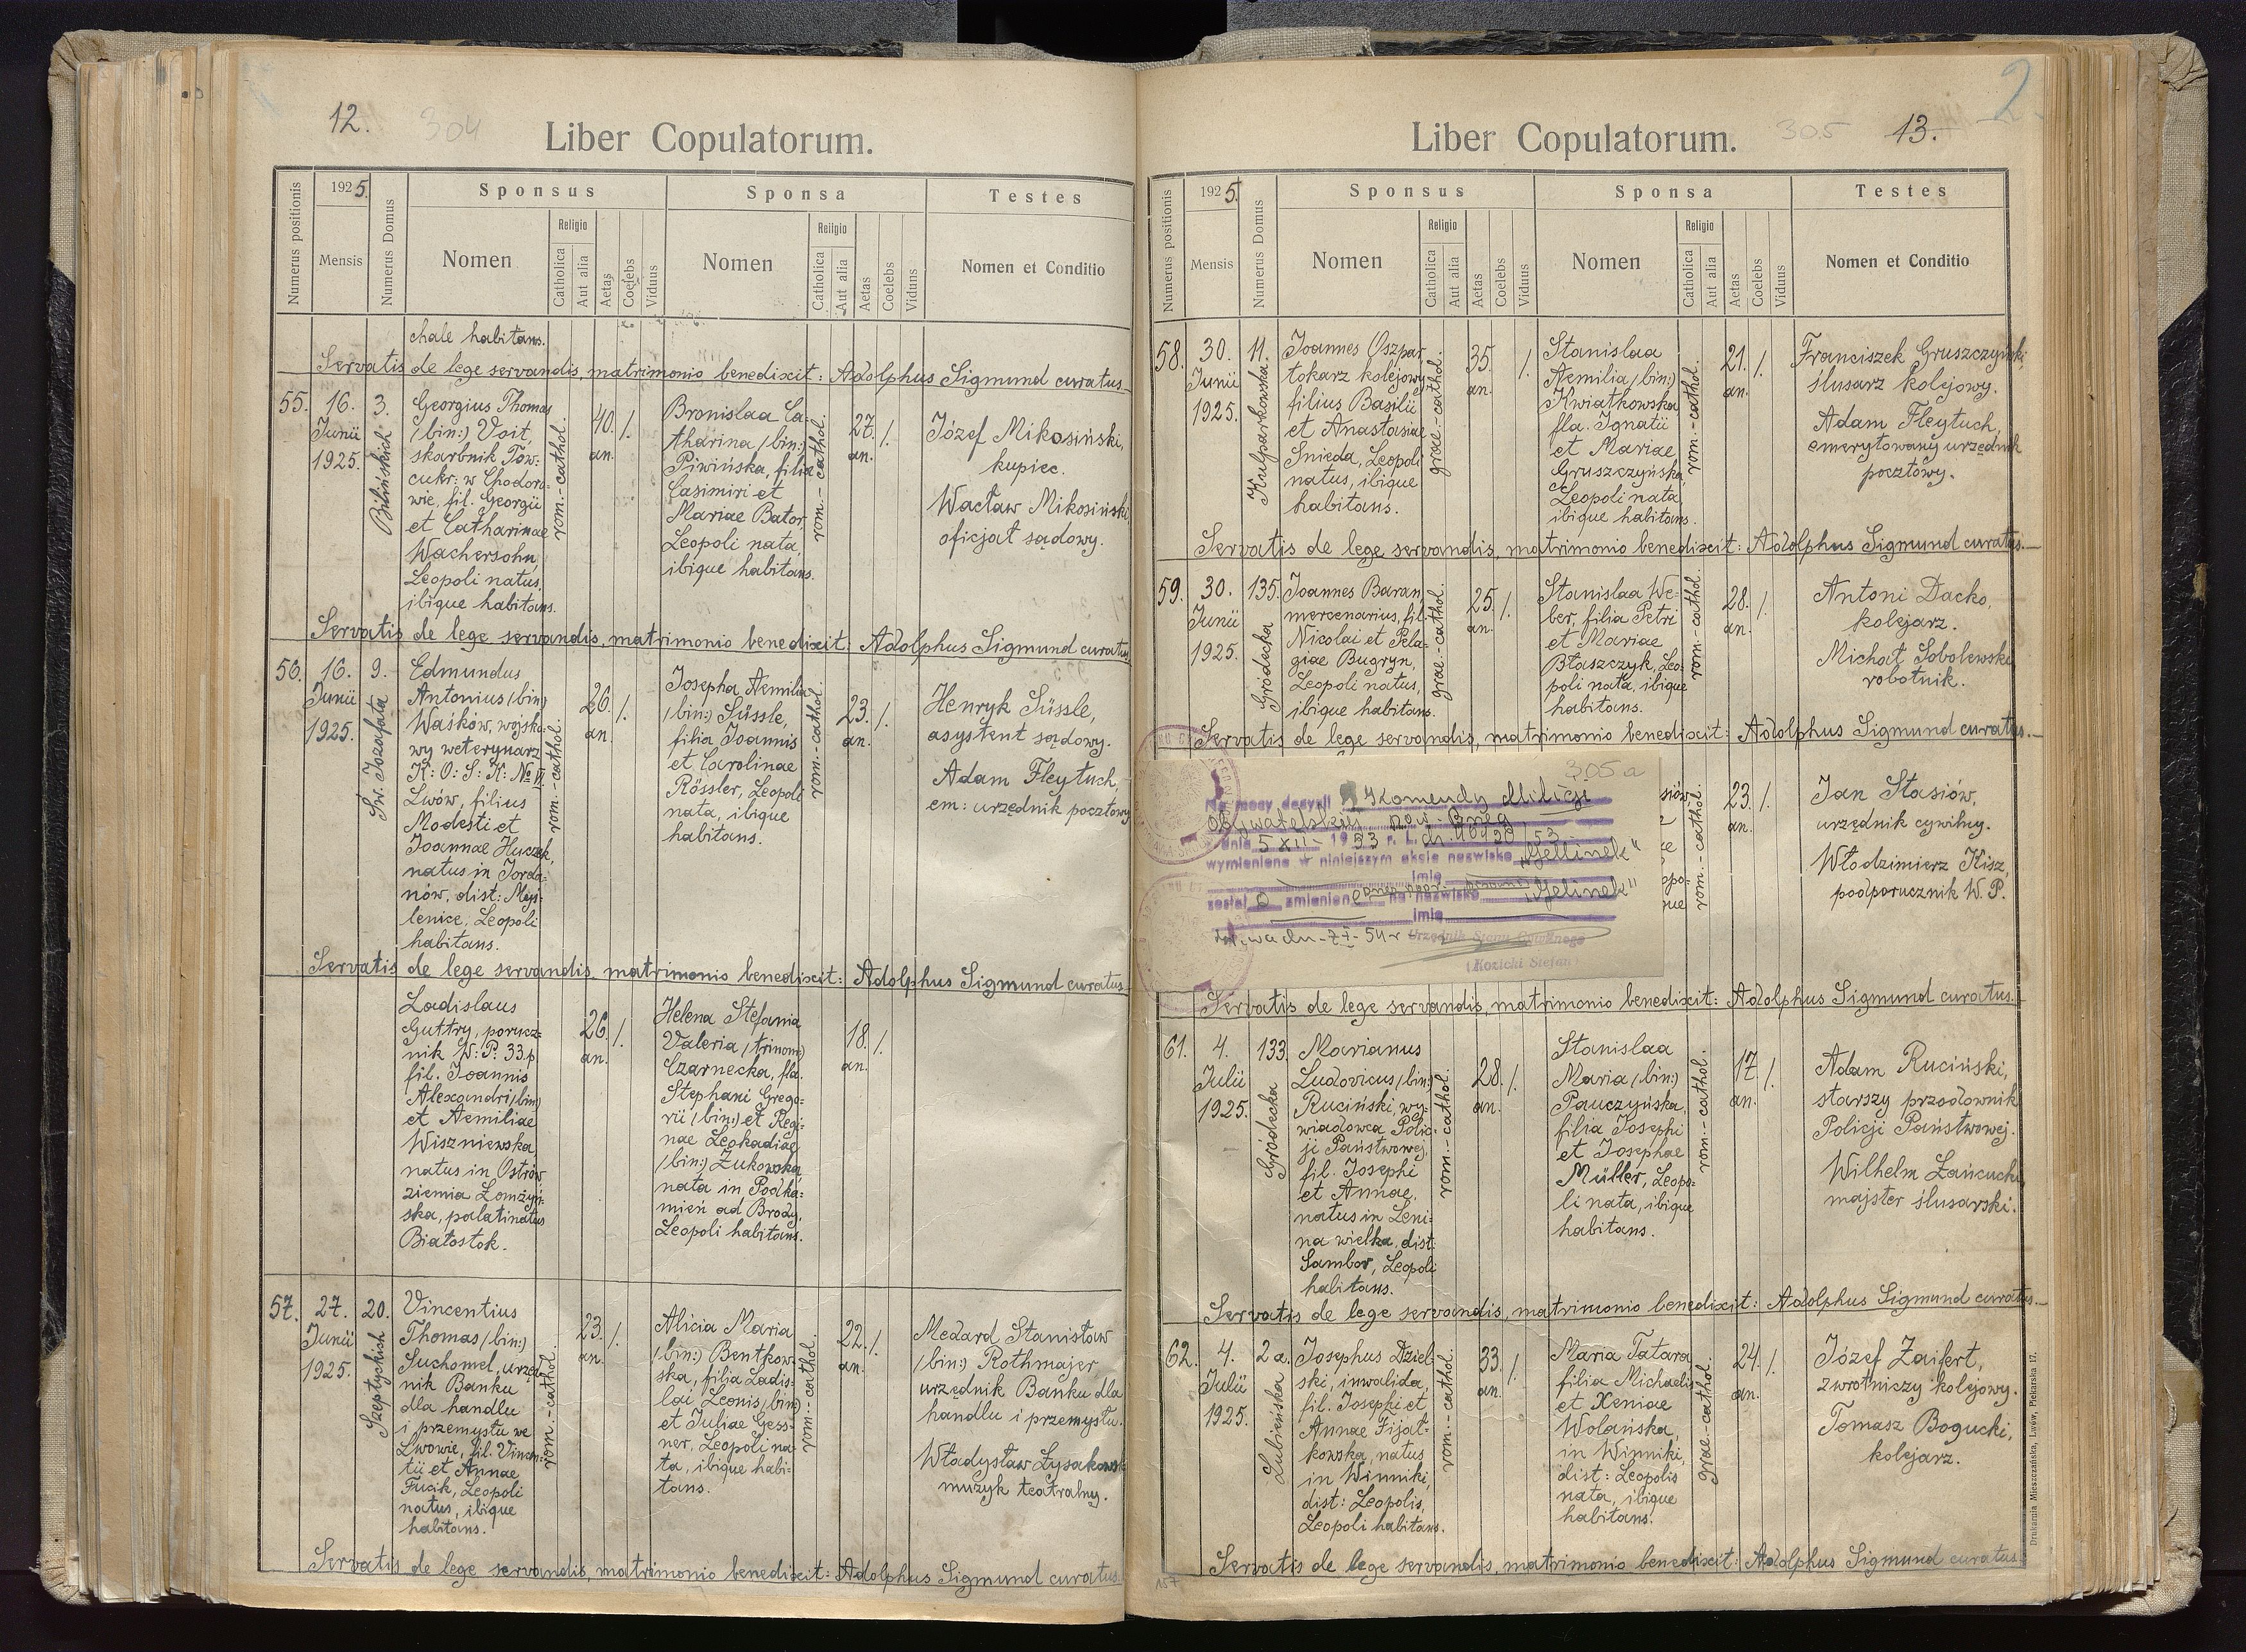 12.
304
Liber Copulatorum.
Numerus positionis
1925.
Mensis
Numerus Domus
Sponsus
Nomen
Religio
Catholica
Aut alia
Aetas
Coelebs
Viduus
Sponsa
Nomen
Religio
Catholica
Aut alia
Aetas
Coelebs
Viduus
Testes
Nomen et Conditio
chale habitans.
Servatis de lege servandis, matrimonio benedixit: Adolphus Sigmund curatus
55.
16.
Junii
1925.
3.
Bilińskich
Georgius Thomas
(bin:) Voit,
skarbnik Tow:
cukr: w Chodoro-
wie, fil. Georgii
et Catharinae
Wachersohn,
Leopoli natus,
ibique habitans.
rom.-cathol.
40.
an.
1.
Bronislaa Ca-
tharina (bin:)
Piwińska, filia
Casimiri et
Mariae Bator,
Leopoli nata,
ibique habitans.
rom.-cathol.
27.
an.
1.
Józef Mikosiński,
kupiec.
Wacław Mikosiński
oficjał sądowy.
Servatis de lege servandis, matrimonio benedixit: Adolphus Sigmund curatus
56.
16.
Junii
1925.
9.
Św. Jozafata
Edmundus
Antonius (bin:)
Waśków, wojsko-
wy weterynarz
K: O: S: K: № VI.
Lwów, filius
Modesti et
Joannae Huczek,
natus in Jorda-
nów, dist: Myś-
lenice, Leopoli
habitans.
rom.-cathol.
26.
an.
1.
Josepha Aemilia
(bin:) Süssle,
filia Joannis
et Carolinae
Rössler, Leopoli
nata, ibique
habitans.
rom.-cathol.
23.
an.
1.
Henryk Süssle,
asystent sądowy.
Adam Fleytuch,
em: urzędnik pocztowy
Servatis de lege servandis, matrimonio benedixit: Adolphus Sigmund curatus
Ladislaus
Guttry, porucz-
nik W: P: 33.p
fil. Joannis
Alexandri (bin:)
et Aemiliae
Wiszniewska,
natus in Ostrów
ziemia Łomżyń-
ska, palatinatus
Białostok.
26.
an.
1.
Helena Stefania
Valeria (trinom:)
Czarnecka, fla.
Stephani Grego-
rii (bin:) et Regi-
nae Leokadiae
(bin:) Żukowska,
nata in Podka-
mień ad Brody,
Leopoli habitans.
18.
an.
1.
57.
27.
Junii
1925.
20.
Szeptyckich
Vincentius
Thomas (bin:)
Suchomel, urzęd-
nik Banku
dla handlu
i przemysłu we
Lwowie, fil. Vincen-
tii et Annae
Fucik, Leopoli
natus, ibique
habitans.
rom.-cathol.
23.
an.
1.
Alicia Maria
(bin:) Bentkow-
ska, filia Ladis-
lai Leonis (bin:)
et Juliae Gess-
ner, Leopoli na-
ta, ibique habi-
tans.
rom.-cathol.
22.
an.
1.
Medard Stanisław
(bin:) Rothmajer
urzędnik Banku dla
handlu i przemysłu.
Władysław Łysakowski
muzyk teatralny.
Servatis de lege servandis, matrimonio benedixit: Adolphus Sigmund curatus
2
305
13.
Liber Copulatorum.
Numerus positionis
1925.
Mensis
Numerus Domus
Sponsus
Nomen
Religio
Catholica
Aut alia
Aetas
Coelebs
Viduus
Sponsa
Nomen
Religio
Catholica
Aut alia
Aetas
Coelebs
Viduus
Testes
Nomen et Conditio
58.
30.
Junii
1925.
11.
Kulparkowska
Joannes Oszpar,
tokarz kolejowy
filius Basilii
et Anastasiae
Snieda, Leopoli
natus, ibique
habitans.
grae.-cathol.
35.
an.
1.
Stanislaa
Aemilia (bin:)
Kwiatkowska
fla. Ignatii
et Mariae
Gruszczyńska
Leopoli nata
ibique habitans.
rom.-cathol.
21.
an.
1.
Franciszek Gruszczyński,
ślusarz kolejowy.
Adam Fleytuch,
emerytowany urzędnik
pocztowy.
Servatis de lege servandis, matrimonio benedixit: Adolphus Sigmund curatus.
59.
30.
Junii
1925.
135.
Gródecka
Joannes Baran
mercenarius, fil.
Nicolai et Pela-
giae Bugryn,
Leopoli natus,
ibique habitans.
grae.-cathol.
25.
an.
1.
Stanislaa We-
ber, filia Petri
et Mariae
Błaszczyk, Leo-
poli nata, ibique
habitans.
rom.-cathol.
28.
an.
1.
Antoni Dacko,
kolejarz.
Michał Sobolewski
robotnik.
Servatis de lege servandis, matrimonio benedixit: Adolphus Sigmund curatus.
305a
Na mocy decyzji Komendy Milicji
Obywatelskiej pow. Brzeg
dnia 5 XII 1953 r. L.
wymienione w niniejszym akcie nazwisko „Jellinek"
imię
został o zmienione na nazwisko „Jelinek"
imię
Urzędnik Stanu Cywilnego
(Kozicki Stefan)
siów
opo-
que
rom.-cathol.
23.
an.
1.
Jan Stasiów,
urzędnik cywilny.
Włodzimierz Kisz,
podporucznik W. P.
Servatis de lege servandis, matrimonio benedixit: Adolphus Sigmund curatus.
61.
4.
Julii
1925.
133
Gródecka
Marianus
Ludovicus (bin:)
Ruciński, wy-
wiadowca Polic-
ji Państwowej,
fil. Josephi
et Annae,
natus in Leni-
na wielka, dist:
Sambor, Leopoli
habitans.
rom.-cathol.
28.
an.
1.
Stanislaa
Maria (bin:)
Pauczyńska,
filia Josephi
et Josephae
Müller, Leopo-
li nata, ibique
habitans.
rom.-cathol.
17.
an.
1.
Adam Ruciński,
starszy przodownik
Policji Państwowej.
Wilhelm Łańcucki,
majster ślusarski.
Servatis de lege servandis, matrimonio benedixit: Adolphus Sigmund curatus.
62.
4.
Julii
1925.
2a.
Lubieńska
Josephus Dziel-
ski, inwalida,
fil. Josephi et
Annae Fijał-
kowska, natus
in Winniki,
dist: Leopolis,
Leopoli habitans.
rom.-cathol.
33.
an.
1.
Maria Tatara
filia Michaelis
et Xeniae
Wolańska,
in Winniki,
dist: Leopolis
nata, ibique
habitans.
grae.-cathol.
24.
an.
1.
Józef Zaifert,
zwrotniczy kolejowy.
Tomasz Bogucki,
kolejarz.
Servatis de lege servandis, matrimonio benedixit: Adolphus Sigmund curatus.
157
Drukarnia Mieszczańska, Lwów, Piekarska 17.